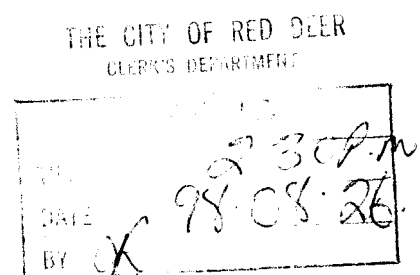 THE CITY OF RED DEER
CLERK'S DEPARTMENT
2 30 P.m
DATE 98.08.26.
BY